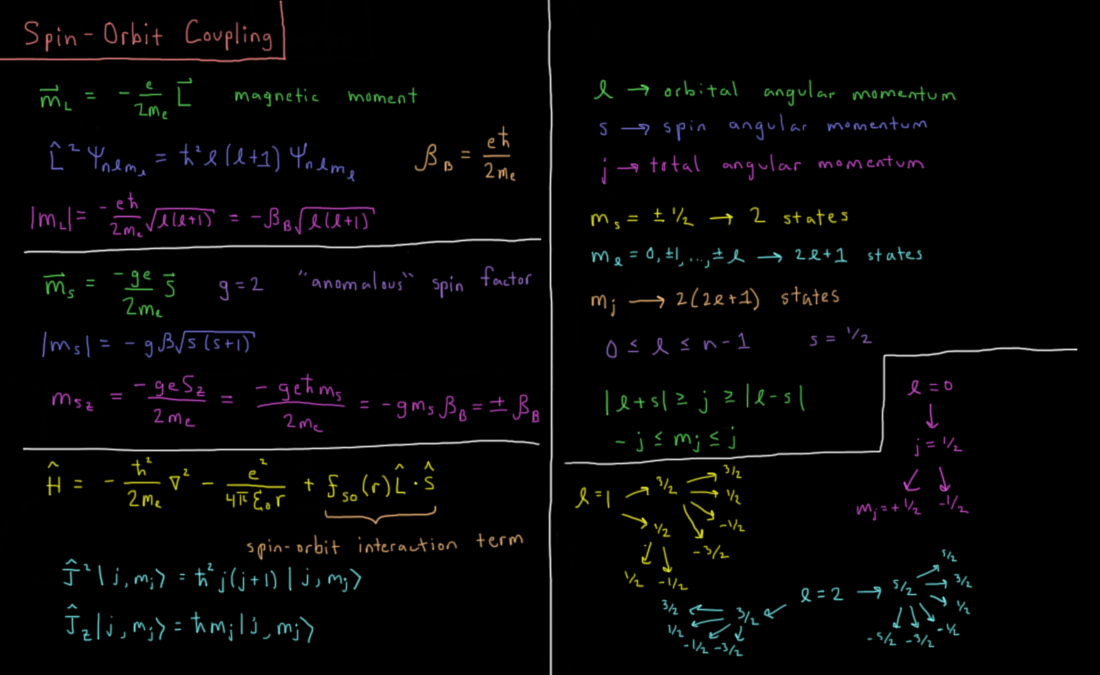 Spin-Orbit Coupling
m⃗_L = -e/2m_e L⃗ magnetic moment
L̂² Ψ_nlm_l = ħ² l(l+1) Ψ_nlm_l β_B = eħ/2m_e
|m_L| = -eħ/2m_e √l(l+1) = -β_B √l(l+1)
m⃗_s = -ge/2m_e s⃗ g=2 "anomalous" spin factor
|m_s| = -gβ√s(s+1)
m_s_z = -geS_z/2m_e = -geħm_s/2m_e = -gm_s β_B = ± β_B
Ĥ = -ħ²/2m_e ∇² - e²/4πε₀r + f_so(r) L̂·Ŝ
spin-orbit interaction term
Ĵ²|j,m_j⟩ = ħ²j(j+1)|j,m_j⟩
Ĵ_z|j,m_j⟩ = ħm_j|j,m_j⟩
l → orbital angular momentum
s → spin angular momentum
j → total angular momentum
m_s = ± 1/2 → 2 states
m_l = 0, ±1, ..., ± l → 2l+1 states
m_j → 2(2l+1) states
0 ≤ l ≤ n-1 s = 1/2
|l+s| ≥ j ≥ |l-s|
-j ≤ m_j ≤ j
l = 0
↓
j = 1/2
↙ ↘
m_j = +1/2 -1/2
l = 1
3/2
3/2
1/2
-1/2
-3/2
1/2
1/2 -1/2
l = 2
3/2
3/2
1/2
-1/2 -3/2
5/2
5/2
3/2
1/2
-1/2
-3/2
-5/2